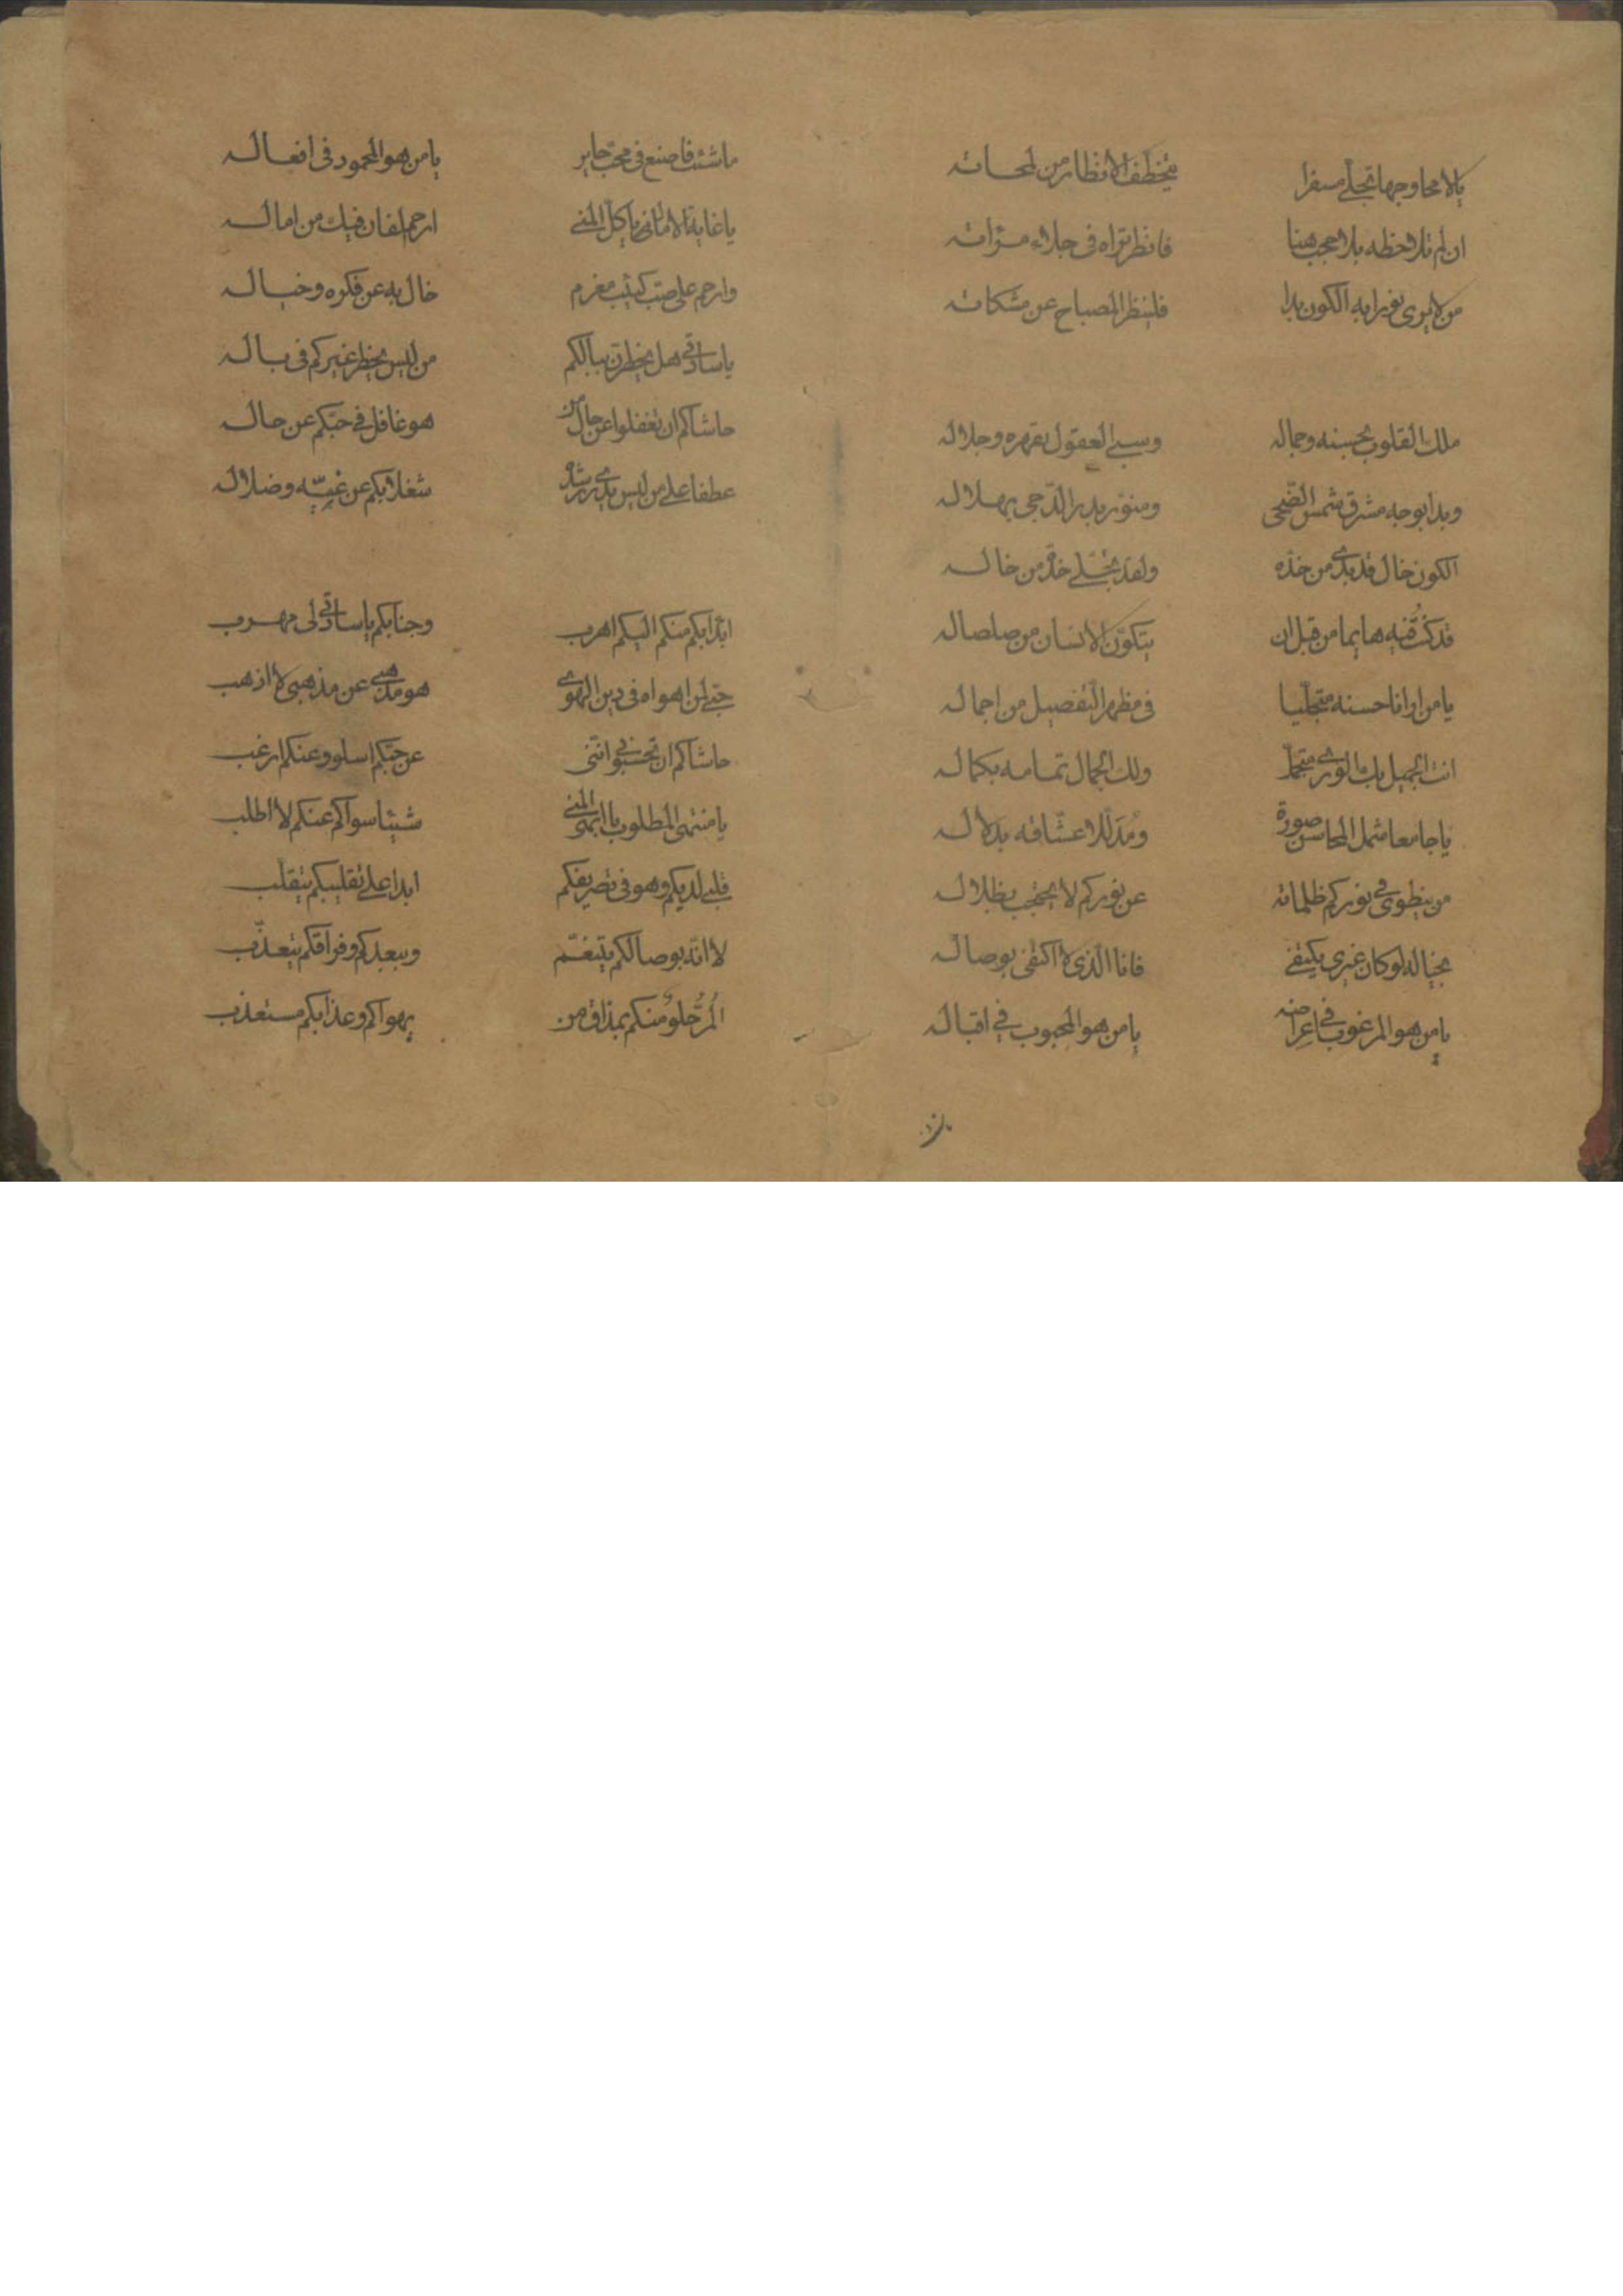 يالامحا وجها تجلّى مسفرا يتخطّف الانظار من لمحاته
ان لم تلاحظه بلا حجب هنا فانظر تراه فى جلاء مرآته
من لا يرى نورا به الكون بدا فلينظر المصباح عن مشكاته
ملك القلوب بحسنه وجماله وسبى العقول بقهره وجلاله
وبدا بوجه مشرق شمس الضّحى ومنوّر بدر الدّجى بهلاله
الكون خال قد بدى من خدّه ولقد تجلّى خدّه من خاله
قد كنتُ فيه هايما من قبل ان يتكوّن الانسان من صلصاله
يا من ارانا حسنه متجلّيا فى مظهر التّفصيل من اجماله
انت الجميل بك الورى متجمّل ولك الجمال تمامه بكماله
يا جامعا شمل المحاسن صورة ومُدَلّلا عشّاقه بدلاله
من ينطوى فى نوركم ظلماته عن نوركم لا يحتجب بظلاله
بخياله لو كان غيرى يكتفى فانا الّذى لا اكتفى بوصاله
يا من هو المرغوب فى اعراضه يا من هو المحبوب فى اقباله
ما شئت فاصنع فى محبّ حاير يا من هو المحمود فى افعاله
يا غاية الامال انى يا كلّ المنى ارحم لفان فيك من اماله
وارحم على صبّ كئيب مغرم خال به عن فكره وخياله
يا ساد تى هل يخطرن ببالكم من ليس يخطر غيركم فى باله
حاشاكم ان تغفلوا عن حال من هو غافل فى حبّكم عن حاله
عطفا على من ليس يدرى رشده شغلا بكم عن غيّه وضلاله
ابدًا بكم منكم اليكم اهرب وجنابكم يا ساد تى لى مهرب
حبّى لمن اهواه فى دين الهوى هو مذهبى عن مذهبى لا اذهب
حاشاكم ان تحسبوا انّنى عن حبّكم اسلو وعنكم ارغب
يا منتهى المطلوب يا ابهى المنى شيئا سواكم عنكم لا اطلب
قلبى لديكم وهو فى تصريفكم ابدا على تقليبكم يتقلّب
لا انّه بوصالكم يتنعّم وببعدكم وفراقكم يتعذّب
المُرُّ حلوٌ منكم بمذاق من بهواكم وعذابكم مستعذب